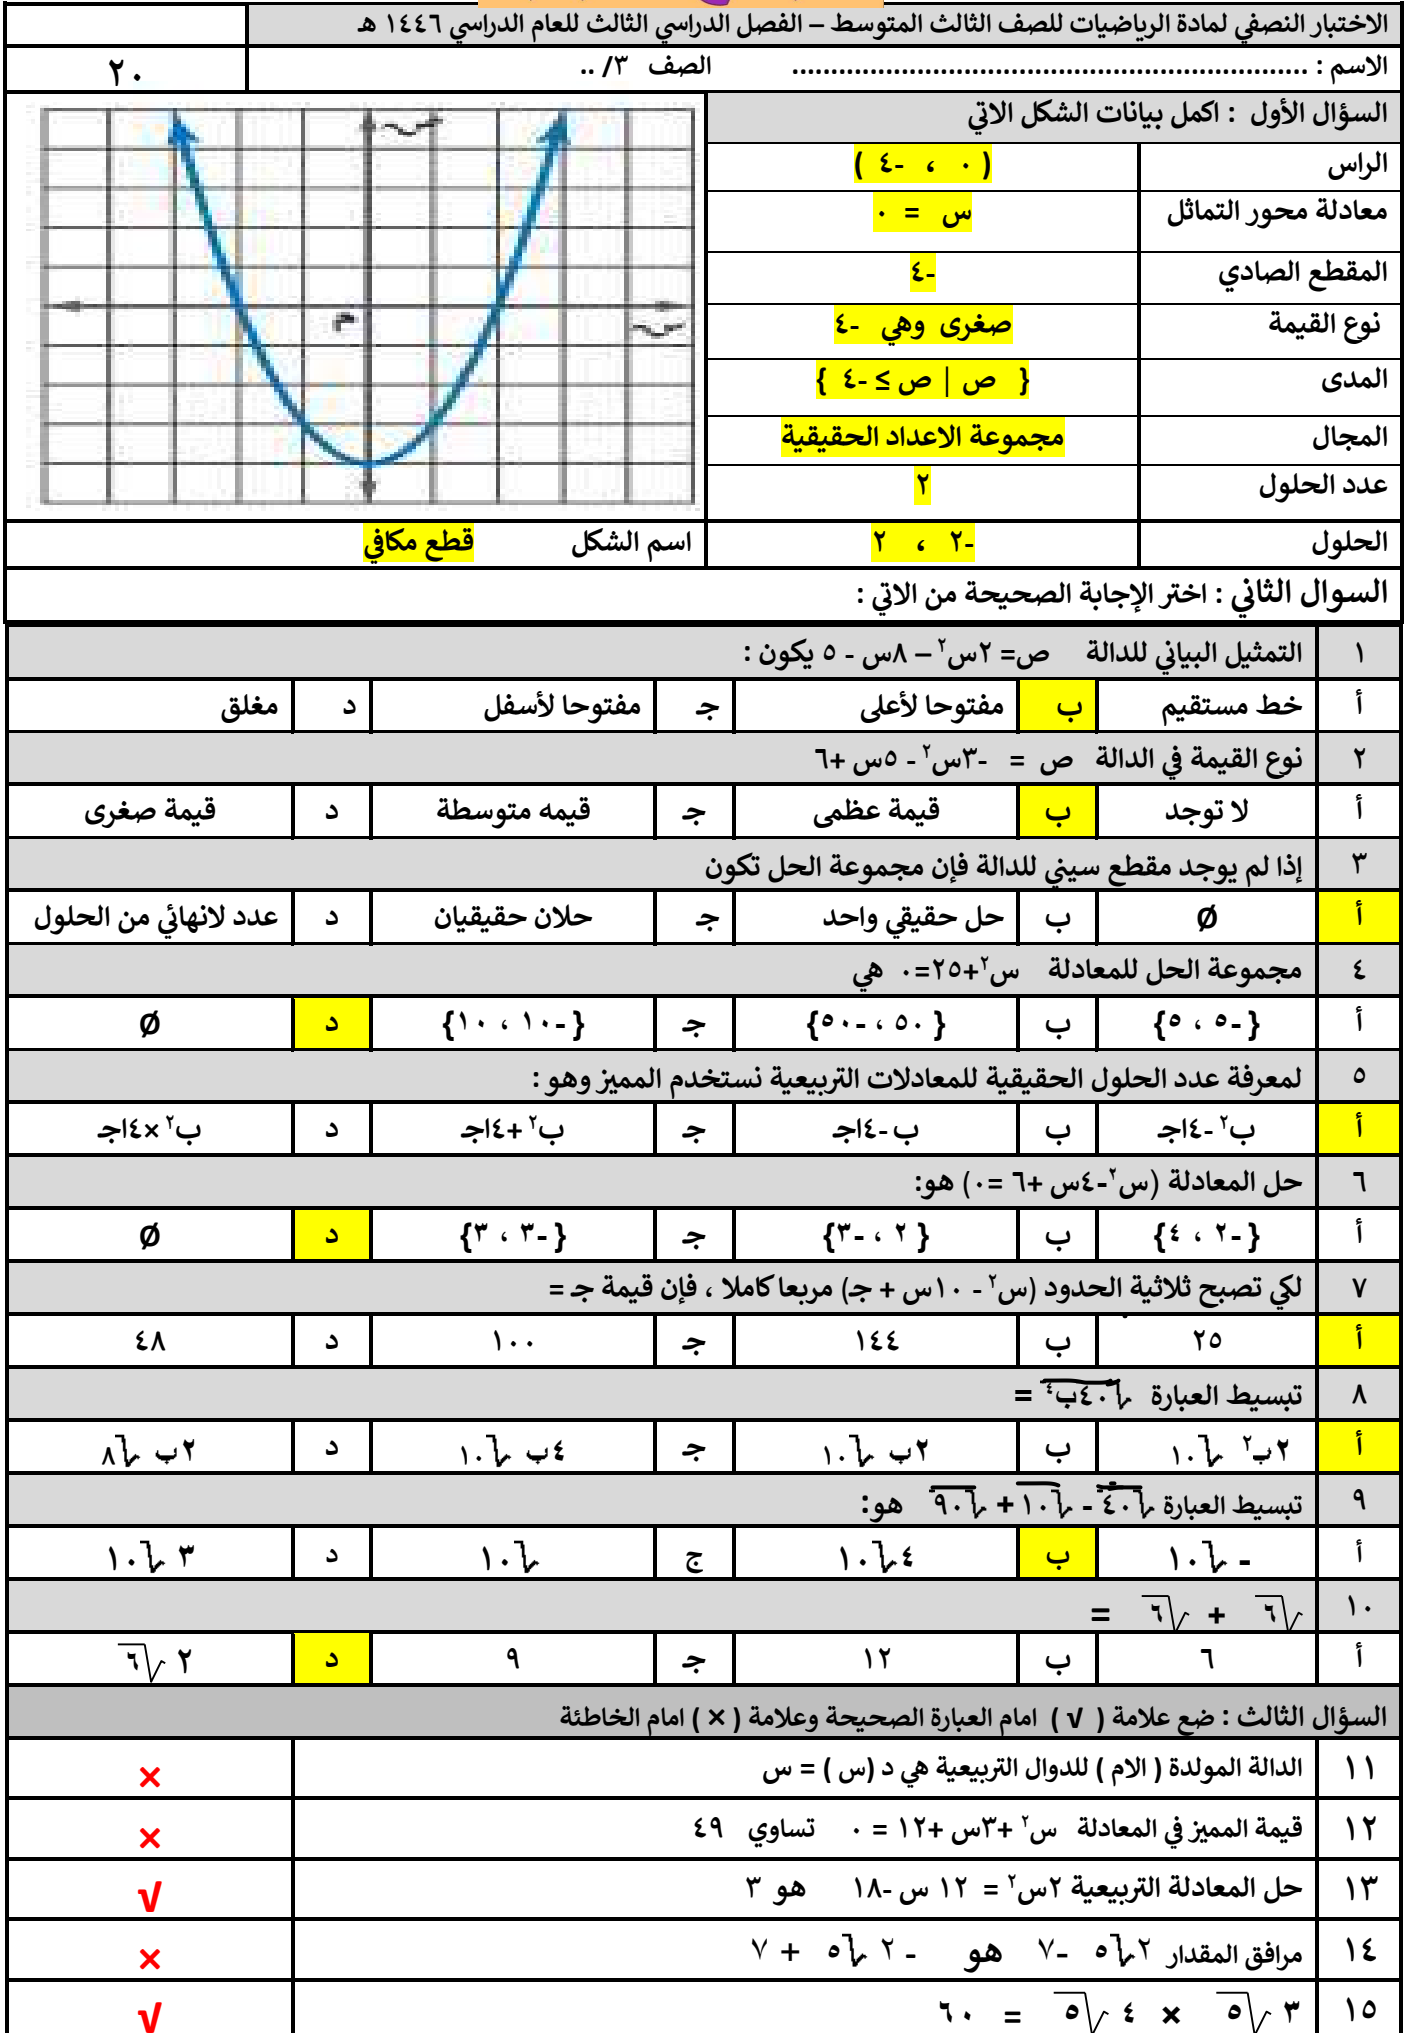 الاختبار النصفي لمادة الرياضيات للصف الثالث المتوسط – الفصل الدراسي الثالث للعام الدراسي ١٤٤٦ هـ
الاسم : .................................................................. الصف ٣/ ..
٢٠
السؤال الأول : اكمل بيانات الشكل الاتي
الراس ( ٠ ، -٤ )
معادلة محور التماثل س = ٠
المقطع الصادي -٤
نوع القيمة صغرى وهي -٤
المدى { ص | ص ≥ -٤ }
المجال مجموعة الاعداد الحقيقية
عدد الحلول ٢
الحلول -٢ ، ٢
اسم الشكل قطع مكافي
ص
م
س
السوال الثاني : اختر الإجابة الصحيحة من الاتي :
١ التمثيل البياني للدالة ص= ٢س٢ – ٨س - ٥ يكون :
أ خط مستقيم ب مفتوحا لأعلى جـ مفتوحا لأسفل د مغلق
٢ نوع القيمة في الدالة ص = -٣س٢ - ٥س +٦
أ لا توجد ب قيمة عظمى جـ قيمه متوسطة د قيمة صغرى
٣ إذا لم يوجد مقطع سيني للدالة فإن مجموعة الحل تكون
أ Ø ب حل حقيقي واحد جـ حلان حقيقيان د عدد لانهائي من الحلول
٤ مجموعة الحل للمعادلة س٢+٢٥=٠ هي
أ {-٥ ، ٥} ب { ٥٠ ، -٥٠} جـ {-١٠ ، ١٠} د Ø
٥ لمعرفة عدد الحلول الحقيقية للمعادلات التربيعية نستخدم المميز وهو :
أ ب٢ -٤اجـ ب ب -٤اجـ جـ ب٢ +٤اجـ د ب٢ ×٤اجـ
٦ حل المعادلة (س٢-٤س +٦ =٠) هو:
أ {-٢ ، ٤} ب { ٢ ، -٣} جـ {-٣ ، ٣} د Ø
٧ لكي تصبح ثلاثية الحدود (س٢ - ١٠س + جـ) مربعا كاملا ، فإن قيمة جـ =
أ ٢٥ ب ١٤٤ جـ ١٠٠ د ٤٨
٨ تبسيط العبارة √٤٠ب٤ =
أ ٢ب٢ √١٠ ب ٢ب √١٠ جـ ٤ب √١٠ د ٢ب √٨
٩ تبسيط العبارة √٤٠ - √١٠ + √٩٠ هو:
أ - √١٠ ب ٤√١٠ ج √١٠ د ٣ √١٠
١٠ √٦ + √٦ =
أ ٦ ب ١٢ جـ ٩ د ٢ √٦
السؤال الثالث : ضع علامة ( √ ) امام العبارة الصحيحة وعلامة ( × ) امام الخاطئة
١١ الدالة المولدة ( الام ) للدوال التربيعية هي د (س ) = س ×
١٢ قيمة المميز في المعادلة س٢ +٣س +١٢ = ٠ تساوي ٤٩ ×
١٣ حل المعادلة التربيعية ٢س٢ = ١٢ س -١٨ هو ٣ √
١٤ مرافق المقدار ٢√٥ -٧ هو - ٢ √٥ + ٧ ×
١٥ ٣ √٥ × ٤ √٥ = ٦٠ √